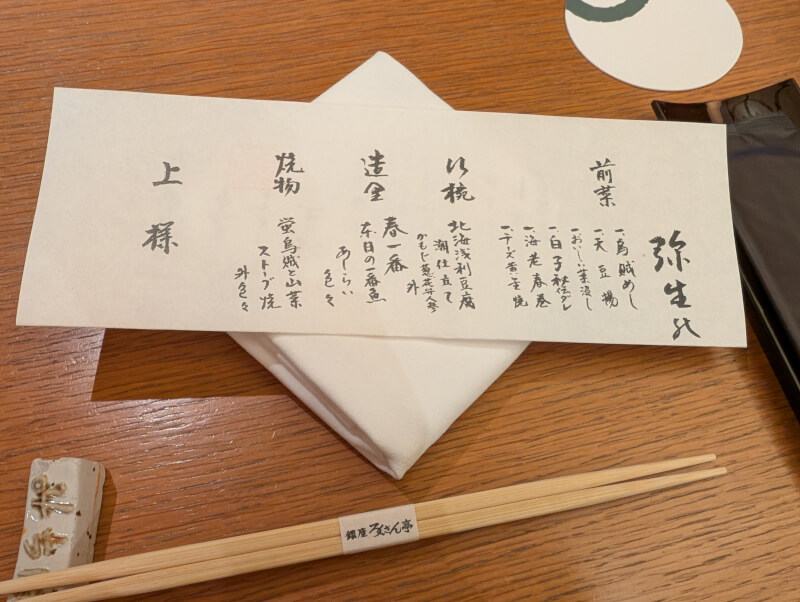 弥生の
前菜
一、烏賊めし
一、天豆揚
一、おいしい葉浸し
一、白子秘伝ダレ
一、海老春巻
一、チーズ黄金焼
汁椀
北海浅利豆腐
潮仕立て
かもじ葱花弁人参
外
造里
春一番
本日の一番魚
あしらい
色々
焼物
蛍烏賊と山菜
ストーブ焼
外色々
上様
銀座